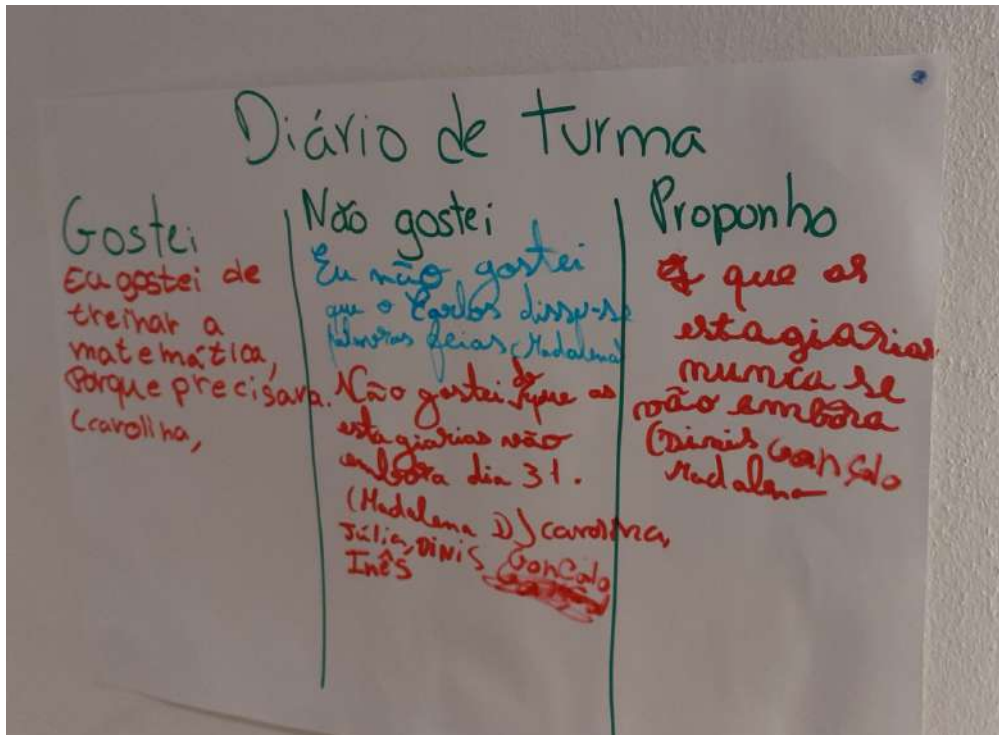 Diário de turma
Gostei
Eu gostei de
treinar a
matemática,
Porque precisava.
(carolina,
Não gostei
Eu não gostei
que o Carlos disse-se
palavras feias (Madalena)
Não gostei de que as
estagiarias vão
embora dia 31.
(Madalena D) carolina,
Júlia, DINIS Gonçalo
Inês
Proponho
que as
estagiarias
nunca se
vão embora
(Dinis Gonçalo
Madalena